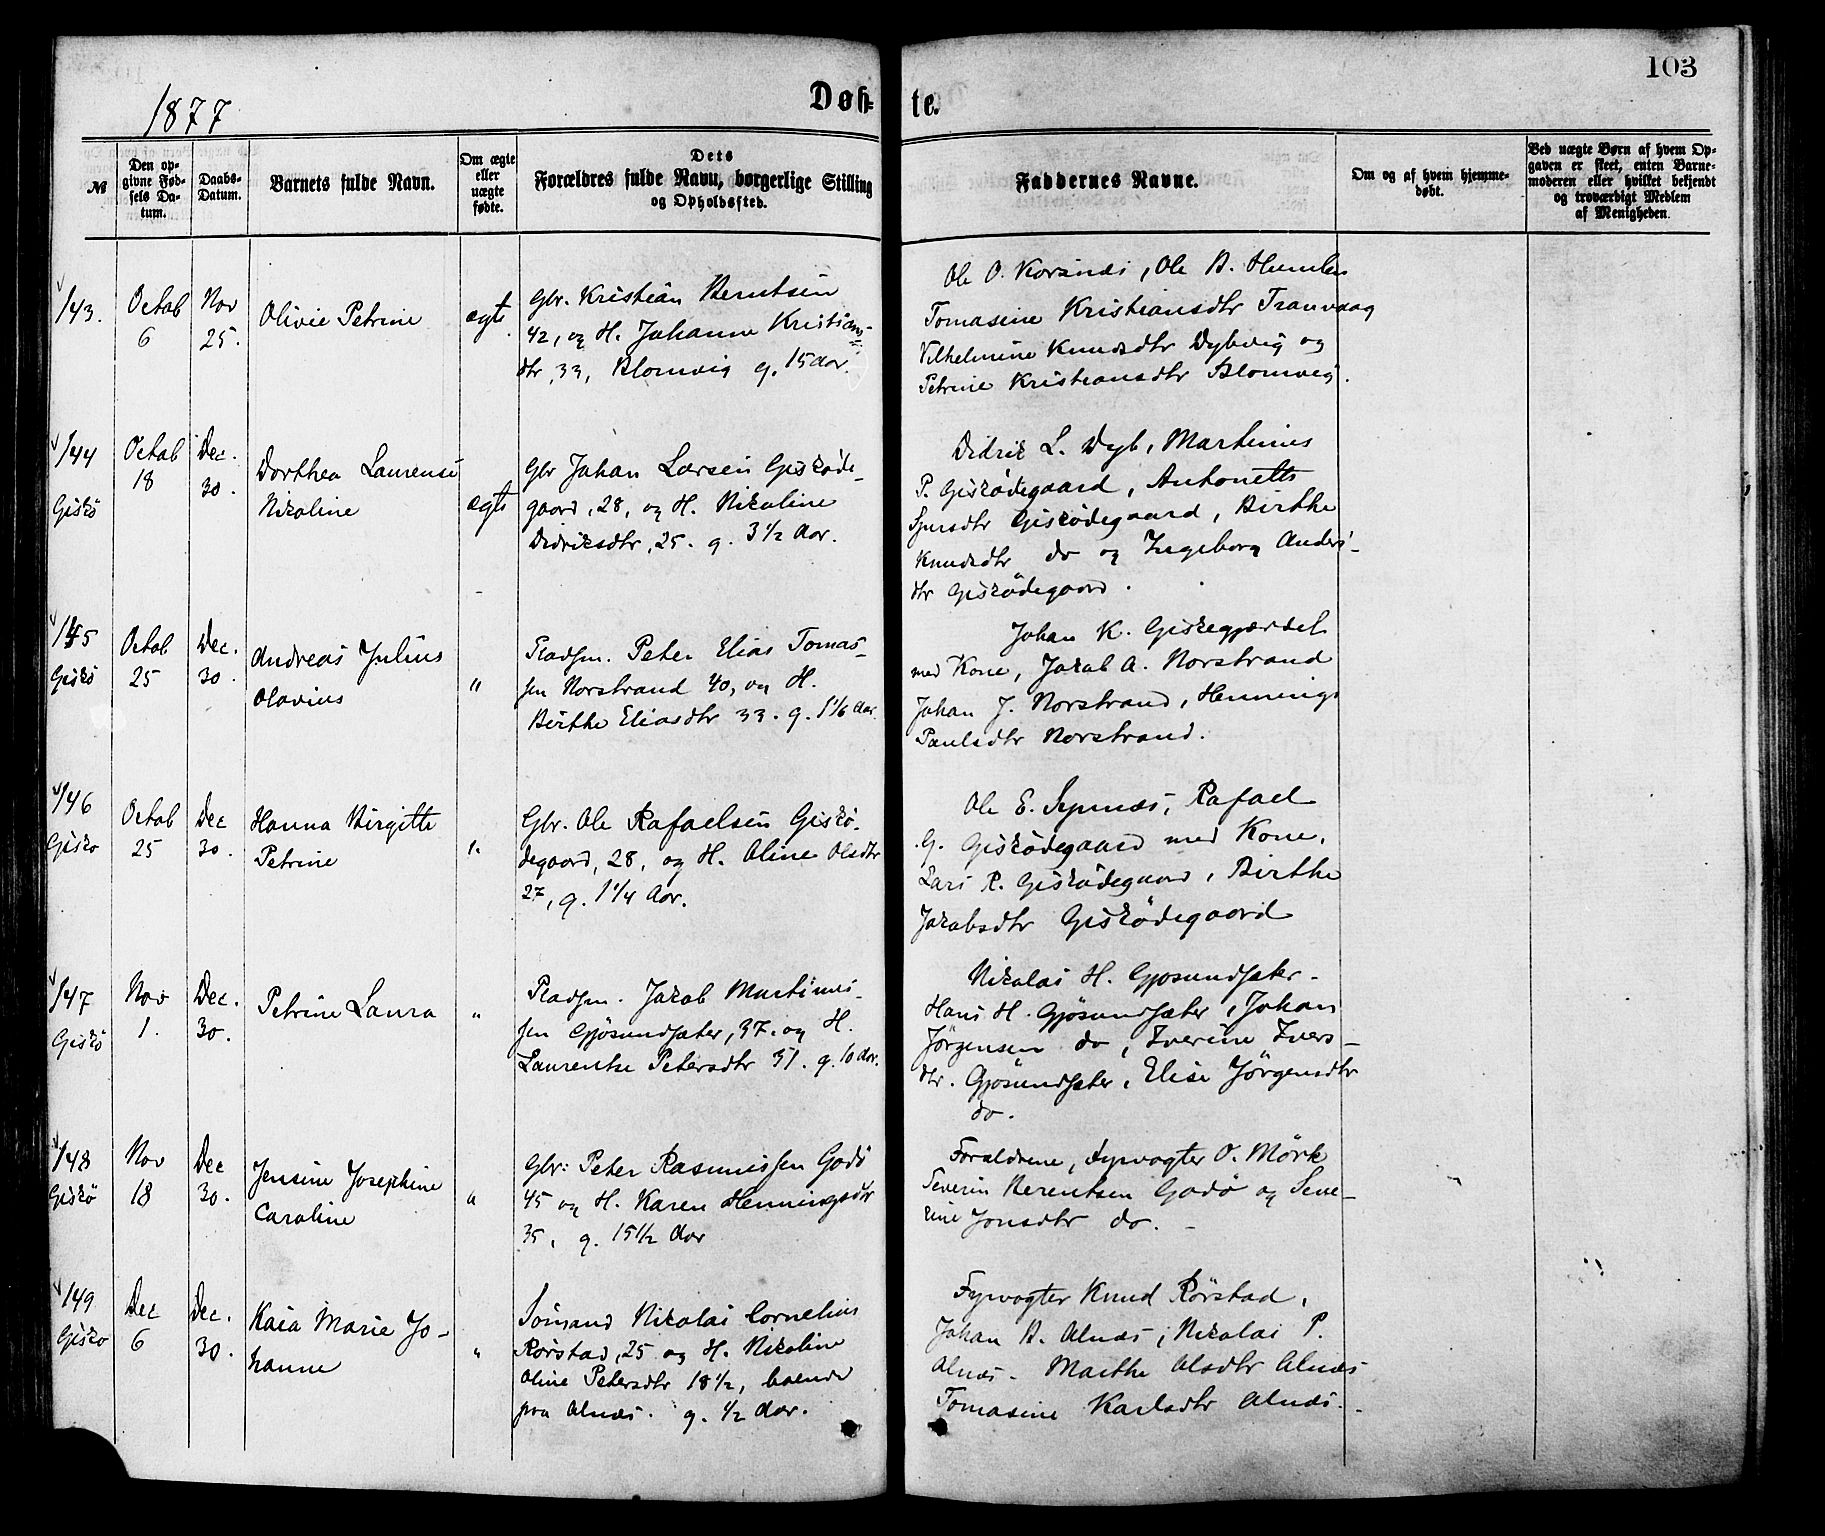 103
1877
Døb-
te.
№
Den op-
givne Fød-
sels Da-
tum.
Daabs-
Datum.
Barnets fulde Navn.
Om ægte
eller
uægte
fødte.
Dets
Forældres fulde Navn, borgerlige Stilling
og Opholdssted.
Faddernes Navne.
Om og af hvem hjemme-
døbt.
Ved uægte Børn af hvem Op-
gaven er skeet, enten Barne-
moderen eller hvilket bekjendt
og troværdigt Medlem
af Menigheden.
143.
Octob
6
Nov
25.
Olivie Petrine
ægte
Gbr. Kristian Berntsen
42, og H. Johanne Kristians-
dtr, 33, Blomvig g. 15 Aar.
Ole O. Korsnæs, Ole A. Humlen
Tomasine Kristiansdtr Tranvaag
Vilhelmine Knudsdtr Dybvig og
Petrine Kristiansdtr Blomvig.
144
Giskö
Octob
18
Dec.
30.
Dorthea Laurense
Nikoline
ægte
Gbr Johan Larsen Giskøde-
gaard, 28, og H. Nikoline
Didriksdtr, 25. g. 3 1/2 Aar.
Didrik L. Dyb, Martinus
P. Giskødegaard, Antonette
Sjursdtr Giskødegaard, Birthe
Knudsdtr do og Ingeborg Anders-
dtr Giskødegaard.
145
Giskö
Octob
25
Dec.
30.
Andreas Julius
Olavius
"
Pladsm. Peter Elias Tomas-
sen Norstrand 40, og H.
Birthe Eliasdtr 33. g. 1 1/6 Aar.
Johan K. Giskegjærdet
med Kone, Jakob A. Norstrand
Johan J. Norstrand, Hennings
Paulsdtr Norstrand.
146
Giskö
Octob
25
Dec
30.
Hanna Birgitte
Petrine
"
Gbr. Ole Rafaelsen Giskø-
degaard, 28, og H. Oline Olsdtr
27, g. 1 1/4 Aar.
Ole E. Synnæs, Rafael
G. Giskødegaard med Kone,
Lars R. Giskødegaard, Birthe
Jakobsdtr Giskødegaard
147
Giskö
Nov
1.
Dec.
30.
Petrine Laura
"
Pladsm. Jakob Martinus-
sen Gjøsundsæter, 37. og H.
Laurentse Petersdtr 31. g. 10 Aar.
Nikolai H. Gjøsundsæter-
Hans H. Gjøsundsæter, Johan
Jørgensen do, Iverine Ivers-
dtr. Gjøsundsæter, Elise Jørgensdtr
do.
148
Giskö
Nov
18
Dec
30.
Jensine Josephine
Caroline
"
Gbr: Peter Rasmussen Godø
45 og H. Karen Henningsdtr
35, g. 15 1/2 Aar
Forældrene, Fyrvogter O. Mörk
Severin Berentsen Godø og Seve-
rine Jonsdtr do.
149
Giskö
Dec
6
Dec.
30.
Kaia Marie Jo-
hanne
"
Sømand Nikolai Cornelius
Rörstad, 25 og H. Nikoline
Oline Petersdtr 18 1/2, boende
paa Alnæs. g. 1/2 Aar.
Fyrvogter Knud Rörstad,
Johan A. Alnæs, Nikolai P.
Alnæs. Marthe Olsdtr Alnæs
Tomasine Karlsdtr Alnæs.